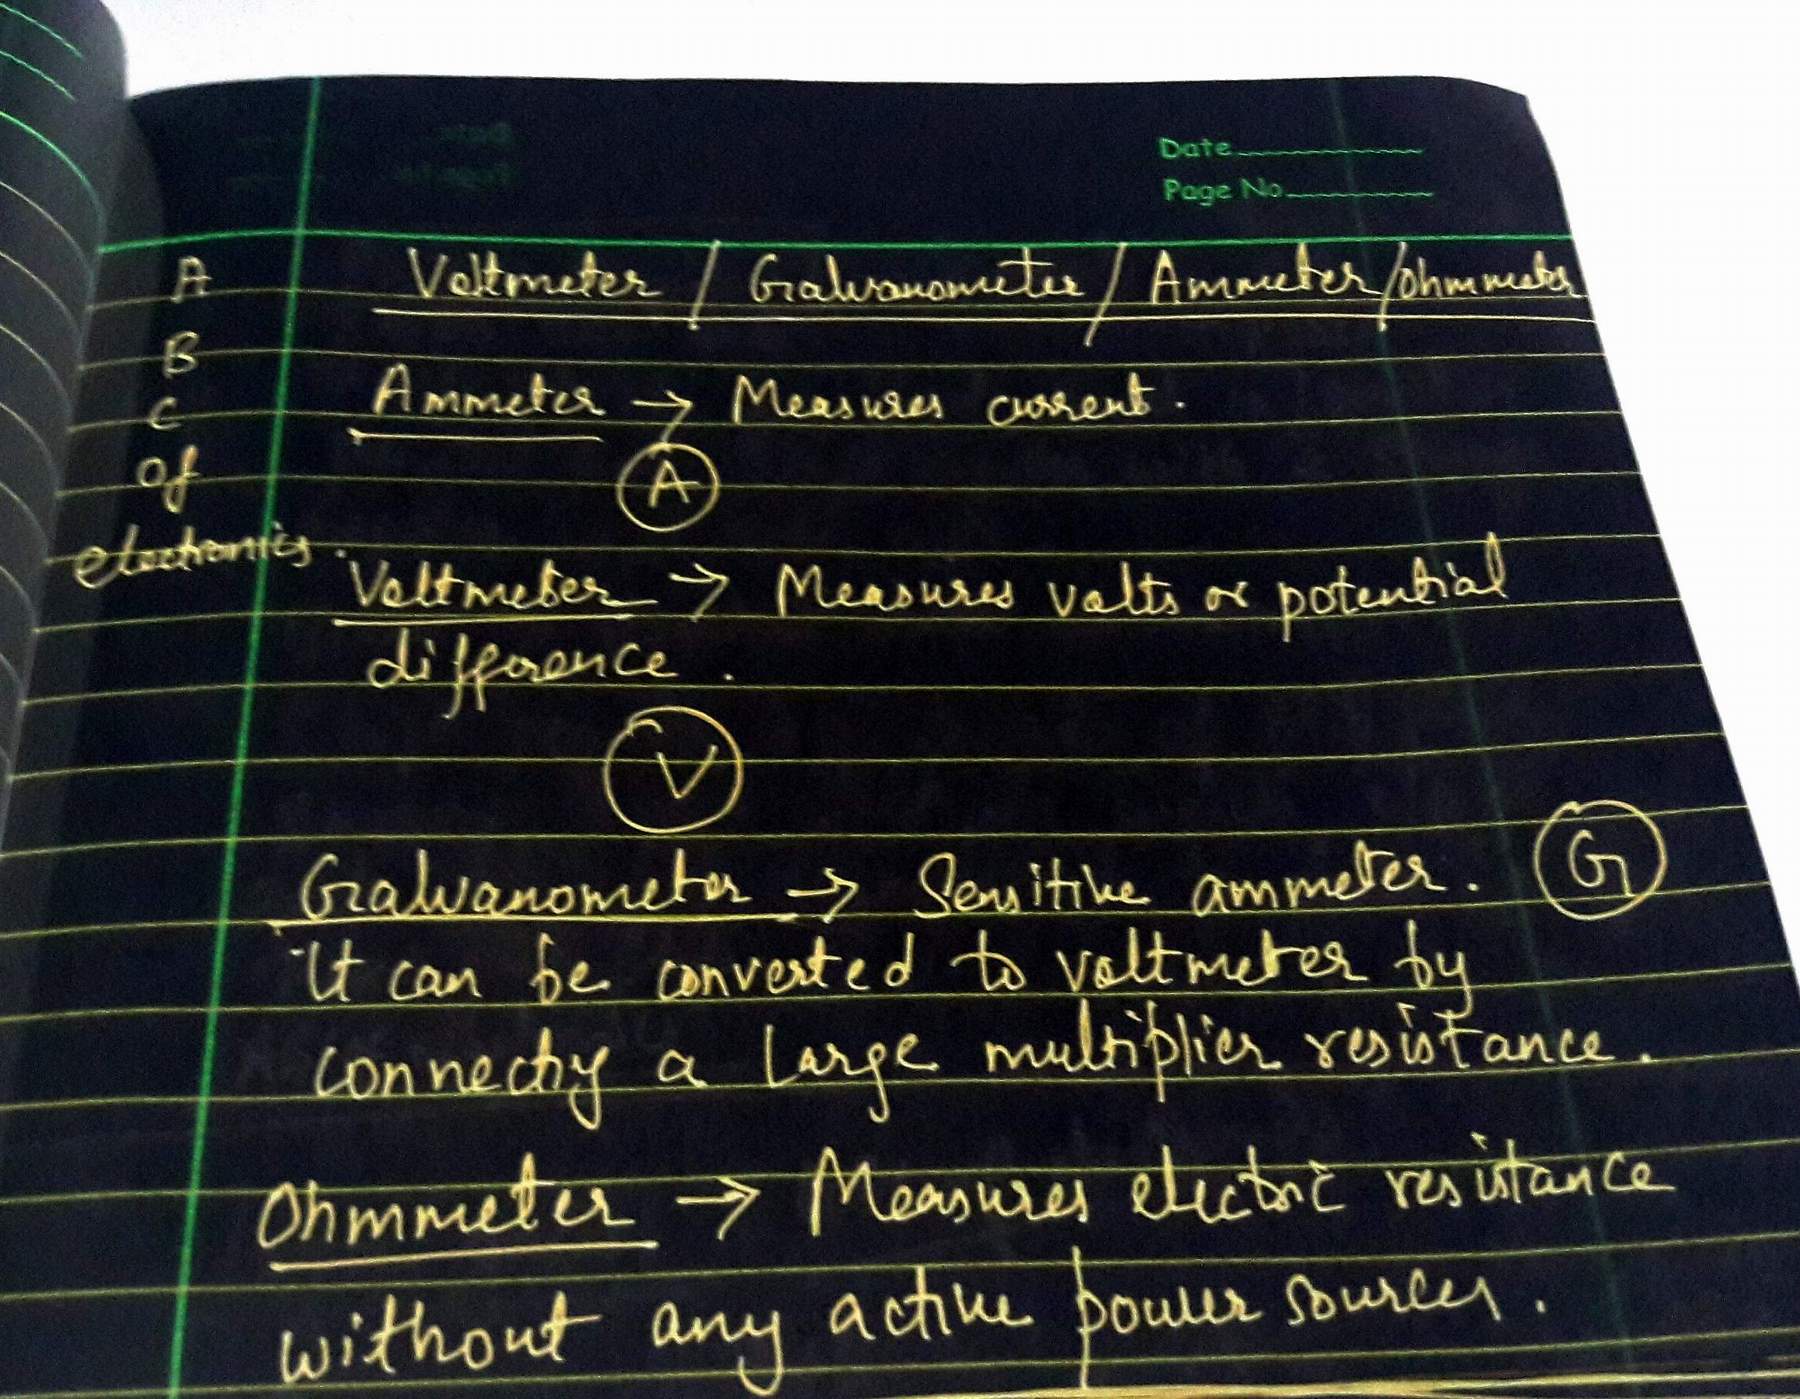 Date
Page No.
A
B
C
of
electronics.
Voltmeter / Galvanometer / Ammeter / Ohmmeter
Ammeter → Measures current.
A
Voltmeter → Measures volts or potential
difference.
V
Galvanometer → Sensitive ammeter. G
It can be converted to voltmeter by
connecting a large multiplier resistance.
Ohmmeter → Measures electric resistance
without any active power sources.